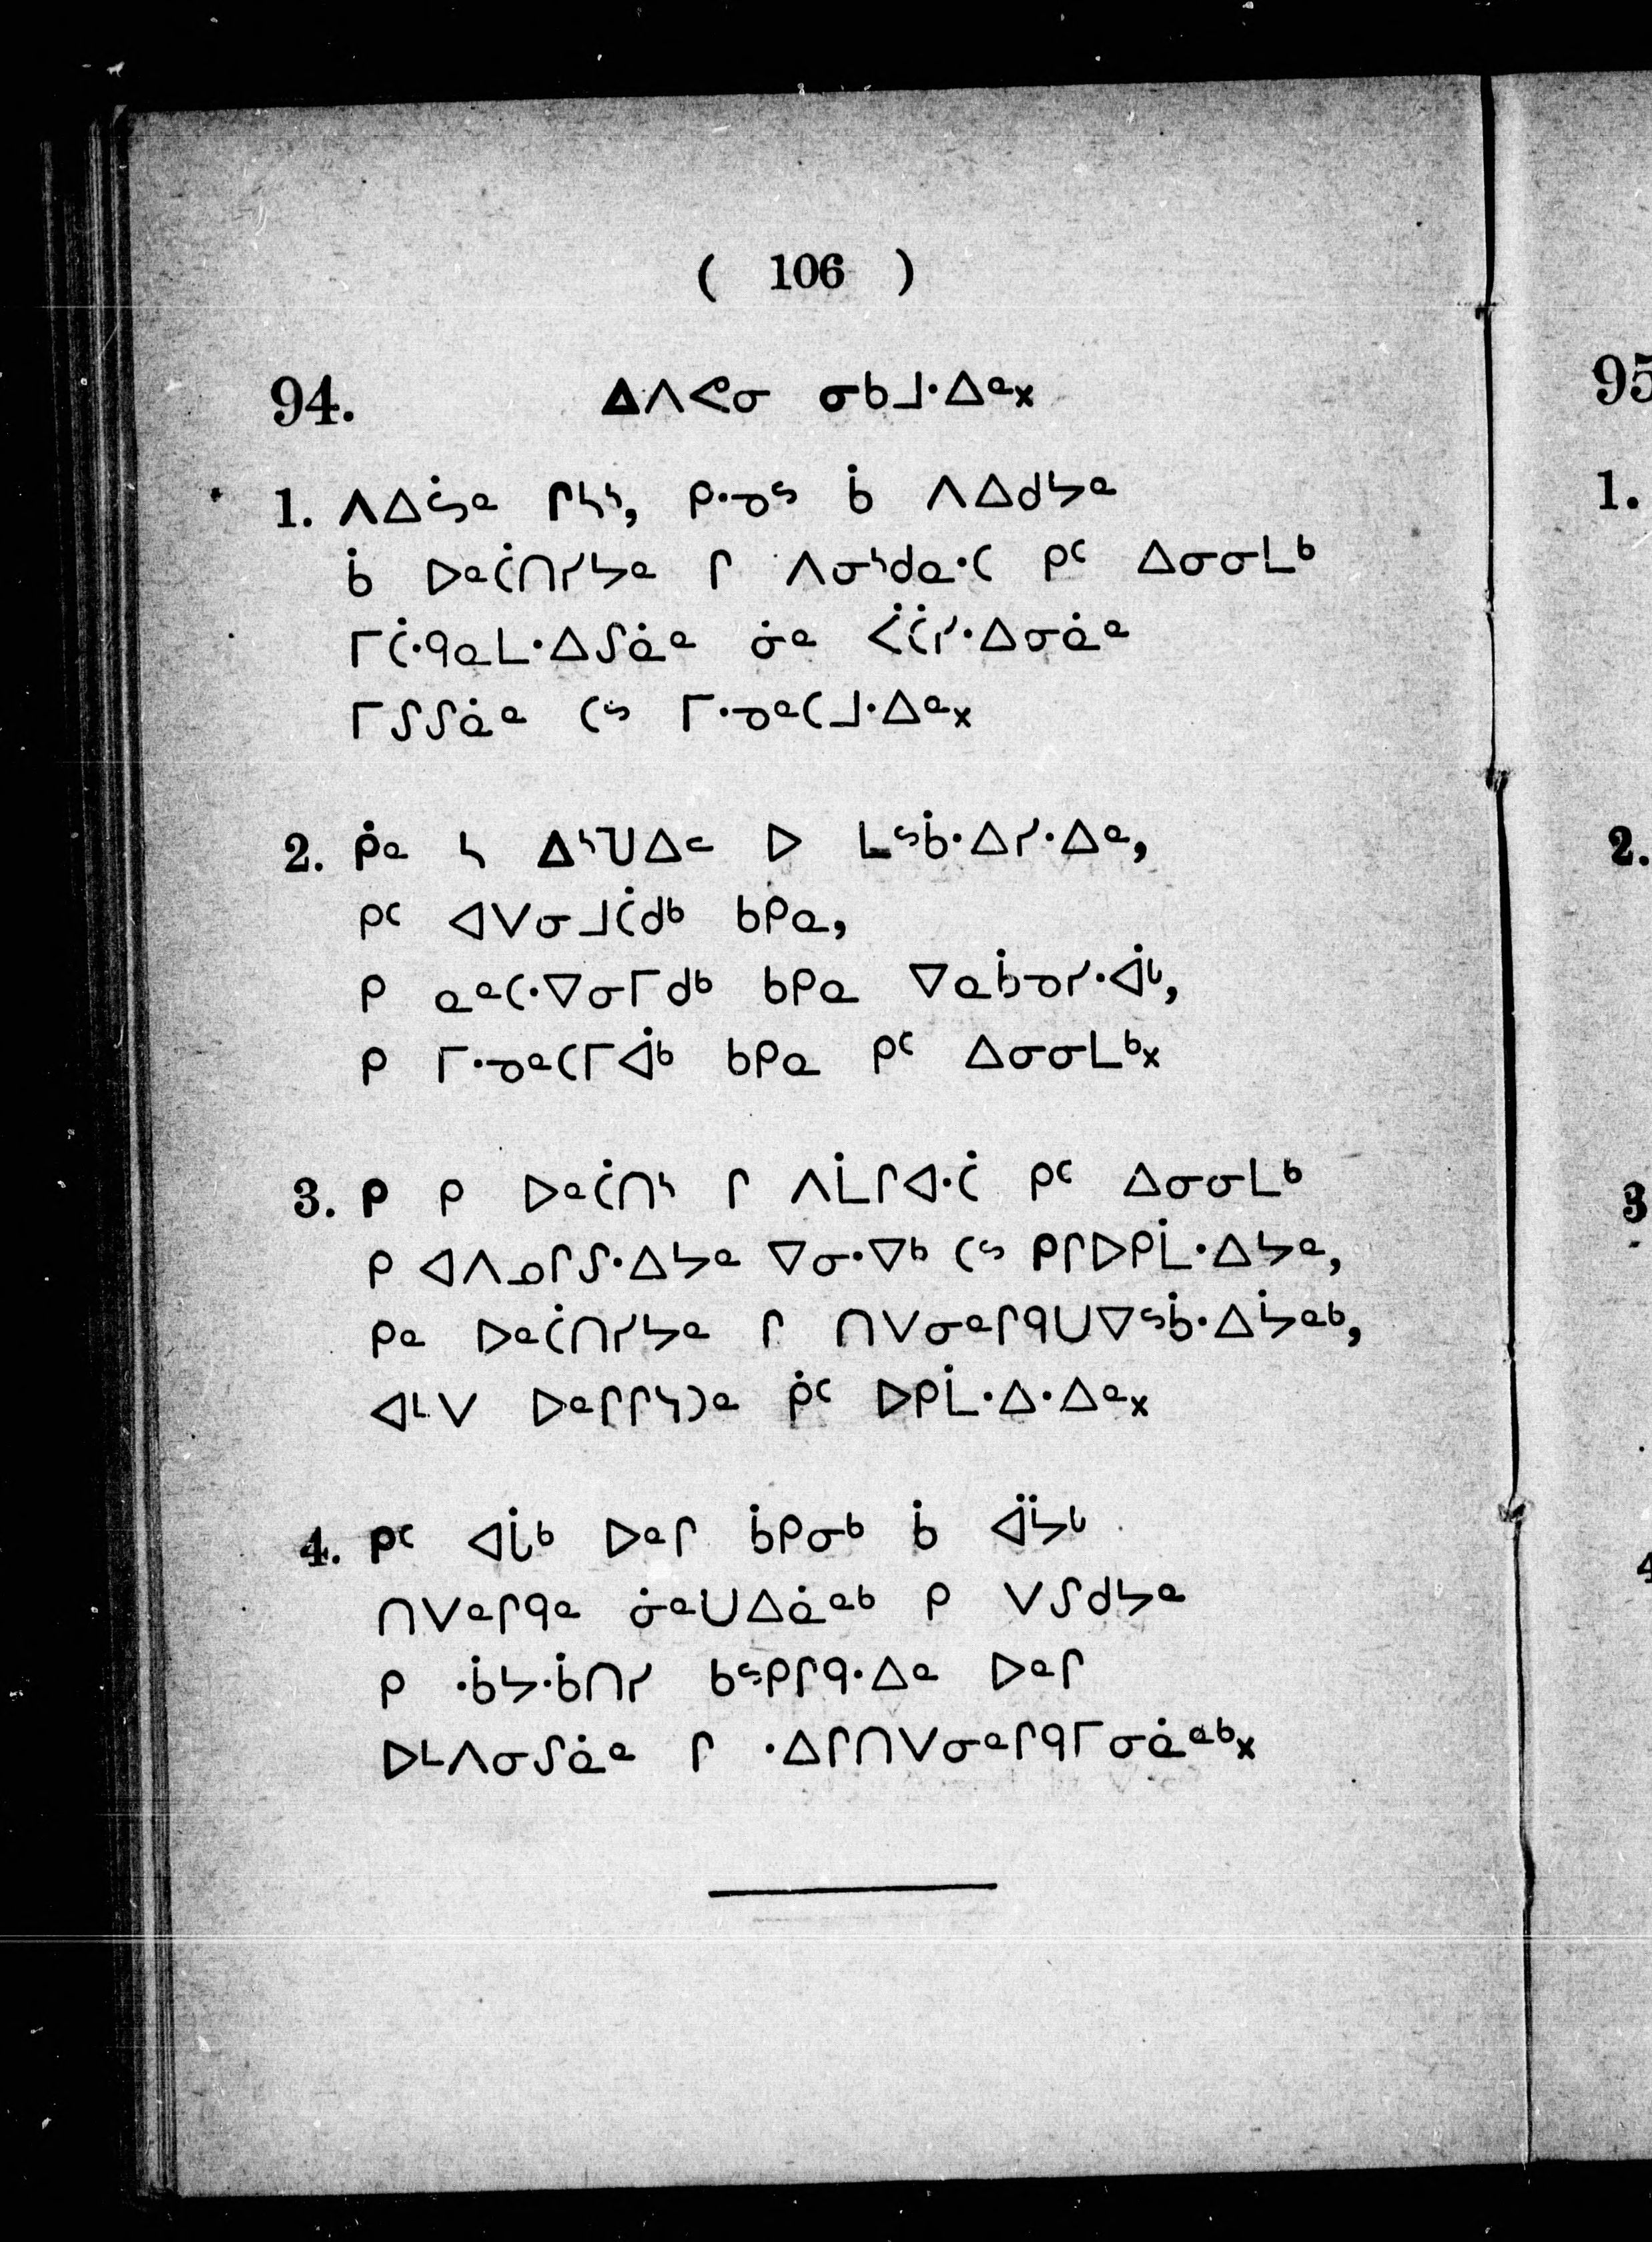 ( 106 )
94. ᐃᐱᕙᓂ ᓂᑲᒧᐧᐃᓐ᙮
1. ᐱᐃᔮᓐ ᒋᓴᔅ, ᑭᐧᓄᔥ ᑳ ᐱᐃᑯᔭᓐ
ᑳ ᐅᓐᑖᑎᓯᔭᓐ ᒋ ᐱᓂᔅᑯᓇᐧᑕ ᑭᑦ ᐃᓂᓂᒪᒃ
ᒥᑖᐧᑫᓇᒪᐧᐃᔑᓈᓐ ᓃᓐ ᐹᑖᓯᐧᐃᓂᓈᓐ
ᒥᔑᔑᓈᓐ ᑕᔥ ᒥᐧᓄᓐᑕᒧᐧᐃᓐ᙮
2. ᑮᓐ ᓴ ᐃᔅᑌᐃᓪ ᐅ ᒪᔥᑳᐧᐃᓯᐧᐃᓐ,
ᑭᑦ ᐊᐯᓂᒧᑖᑯᒃ ᑲᑭᓇ,
ᑭ ᓇᓐᑕᐧᐁᓂᒥᑯᒃ ᑲᑭᓇ ᐁᓇᑳᓄᓯᐧᐋᒡ,
ᑭ ᒥᐧᓄᓐᑕᒥᐋᒃ ᑲᑭᓇ ᑭᑦ ᐃᓂᓂᒪᒃ᙮
3. ᑭ ᑭ ᐅᓐᑖᑎᔅ ᒋ ᐱᒫᒋᐊᐧᑖ ᑭᑦ ᐃᓂᓂᒪᒃ
ᑭ ᐊᐱᓄᒋᔑᐧᐃᔭᓐ ᐁᓂᐧᐁᒃ ᑕᔥ ᑭᒋᐅᑭᒫᐧᐃᔭᓐ,
ᑭᓐ ᐅᓐᑖᑎᓯᔭᓐ ᒋ ᑎᐯᓂᓐᒋᑫᑌᐁᔥᑳᐧᐃᔮᓐᒃ,
ᐊᒻᐯ ᐅᓐᒋᒋᓭᑐᓐ ᑮᑦ ᐅᑭᒫᐧᐃᐧᐃᓐ᙮
4. ᑭᑦ ᐊᒑᒃ ᐅᓐᒋ ᑳᑭᓂᒃ ᑳ ᐋᔮᒡ
ᑎᐯᓐᒋᑫᓐ ᓃᓐᑌᐃᓈᓐᒃ ᑭ ᐯᔑᑯᔭᓐ
ᑭ ᐧᑳᔭᐧᑳᑎᓯ ᑲᔥᑭᒋᑫᐧᐃᓐ ᐅᓐᒋ
ᐅᒻᐱᓂᔑᓈᓐ ᒋ ᐧᐃᒋᑎᐯᓂᓐᒋᑫᒥᓂᓈᓐᒃ᙮
95
1.
2.
3
4